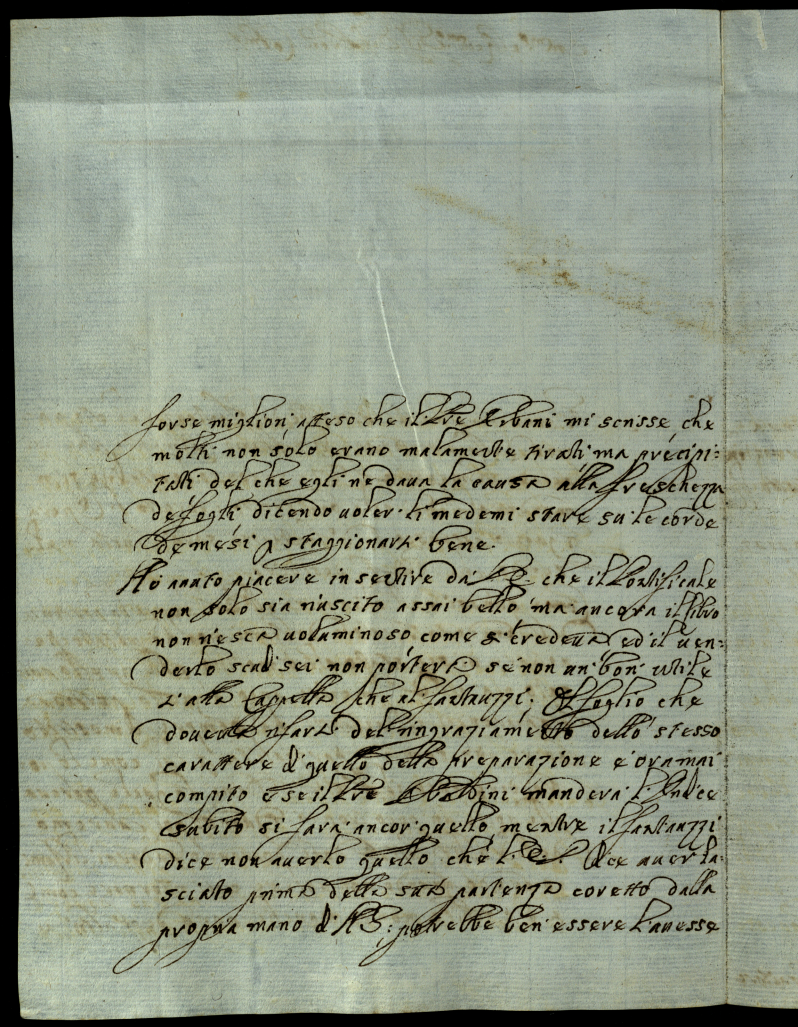 forse migliori atteso che il Pre Urbani mi scrisse, che
molti non solo erano malamente tirati ma precipi:
tati del che egli ne daua la causa alla freschezza
de fogli dicendo uoler li medemi stare su le corde
de mesi p staggionarli bene.
Hò auuto piacere in sentire da che il Pontificale
non solo sia riuscito assai bello ma ancora il libro
non riesca uoluminoso come si credeua ed il uen:
derlo scudi sei non porterà se non un bon utile
alla Cappella che al Fantauzzi; Il foglio che
doueua rifarsi del ringraziamento dello stesso
carattere di quello della preparazione è oramai
compito e se il Pre mandera l'Indice
subito si farà ancor quello mentre il Fantauzzi
dice non auerlo quello che dice auer la:
sciato prima della sua partenza coretto dalla
propria mano di potrebbe ben essere l'auesse